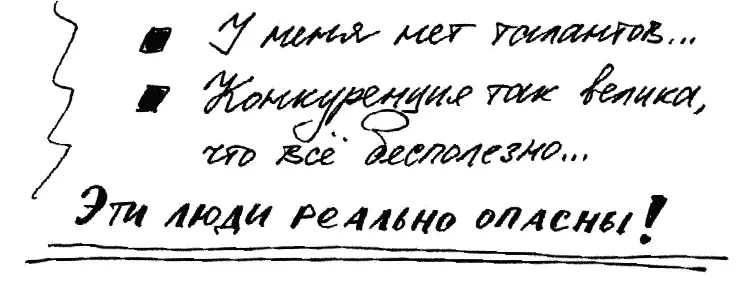 ■ У меня нет талантов...
■ Конкуренция так велика,
что всё бесполезно...
Эти люди реально опасны!